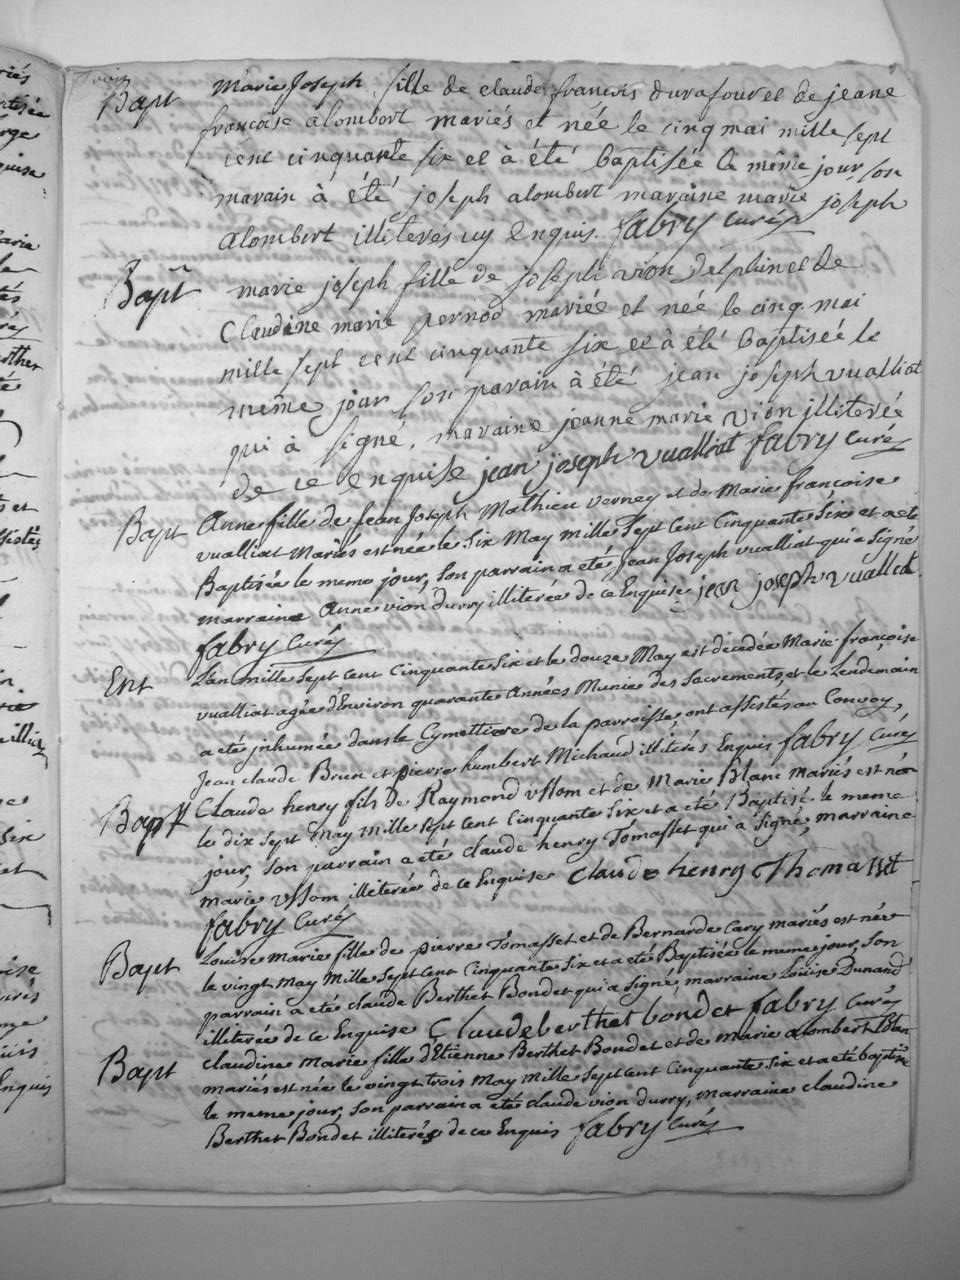 Bapt Marie Joseph fille de claude francois durafour et de jeane
francoise alombert mariés et née le cinq mai mille sept
cent cinquante six et à été baptisée le même jour, son
parain à été joseph alombert maraine marie joseph
alombert illiterés uy enquis. fabry Curés
Bapt marie joseph fille de joseph vion delphin et de
Claudine marie pernod mariée et née le cinq mai
mille sept cent cinquante six et à été baptisée le
même jour son parain à été jean joseph vualliat
qui à signé. maraine jeanne marie vion illiterée
de ce enquise jean joseph vualliat fabry Curés
Bapt Anne fille de Jean Joseph Mathieu verney et de Marie francoise
vualliat Mariés est née le six May mille sept Cent Cinquante six et a ete
Baptisée le meme jour, son parrain a eté Jean Joseph vualliat qui a signé
marraine Anne vion durry illiterée de ce Enquise jean joseph vuallat
fabry Curés
Ent L'an mille sept cent Cinquante six et le douze May est decedée Marie francoise
vualliat agée d'Environ quarante Années Munie des Sacrements, et le Lendemain
a eté jnhumée dans le Cymettiere de la parroisse, ont assistés au Convoy,
Jean claude Brun et pierre humbert Michaud illiterés Enquis fabry Curés
Bapt Claude henry fils de Raymond vssom et de Marie Blanc mariés est née
le dix sept May mille sept cent Cinquante six et a eté Baptisé le meme
jour, son parrain a eté claude henry Tomasset qui à signé, marraine
marie vssom illiterée de ce Enquise Claude henry Thomasset
fabry Curés
Bapt Louise Marie fille de pierre Tomasset et de Bernarde Cary mariés est née
le vingt May Mille sept Cent Cinquante six et a eté Baptisée le meme jour, son
parrain a eté claude Berthet Bondet qui a signé, marraine Louise Dunand
illiterée de ce Enquise Claude berthet bondet fabry Curés
Bapt claudine Marie fille d'Etienne Berthet Bondet et de marie alombert blan
mariés est née le vingt trois May Mille sept cent Cinquante six et a eté baptisée
le meme jour, son parrain a eté claude vion durry, marraine claudine
Berthet Bondet illiterés de ce Enquis fabry Curés